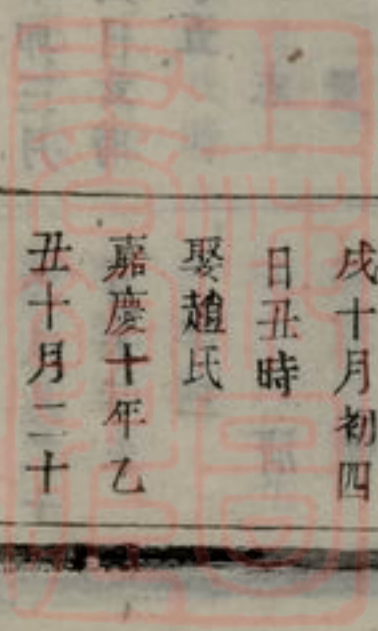 戍十月初四
日丑時
娶趙氏
嘉慶十年乙
丑十月二十